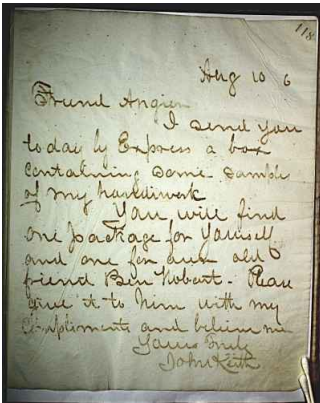 118
Aug 10 6
Friend Angier
I send you
today by Express a box
containing some sample
of my handiwork
You will find
one package for yourself
and one for our old
friend Ben Hobart. Please
give it to him with my
compliments and believe me
Yours Truly
John Keith